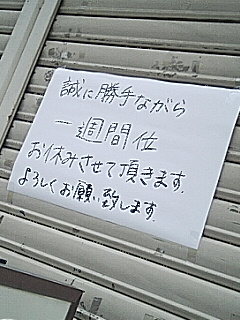 誠に勝手ながら
一週間位
お休みさせて頂きます.
よろしくお願い致します.